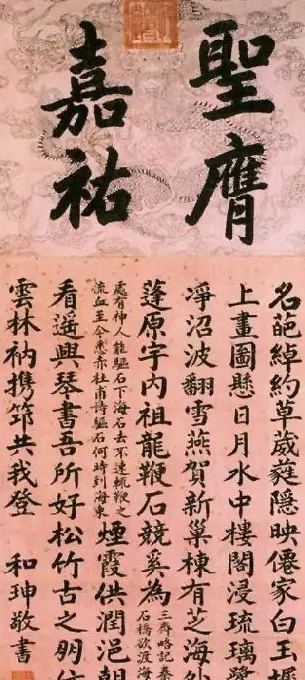 聖膺
嘉祐
名葩綽約草葳蕤隱映僊家白玉
上畫圖懸日月水中樓閣浸琉璃鷺
淨沼波翻雪燕賀新巢棟有芝海外
蓬原宇內祖龍鞭石競奚為
三齊略記秦
石橋欲渡海
處有神人能驅石下海石去不速輒鞭之
流血至今悉赤杜甫詩驅石何時到海東
煙霞供潤浥朝
看遙興琴書吾所好松竹古之朙
雲林衲携笻共我登 和珅敬書